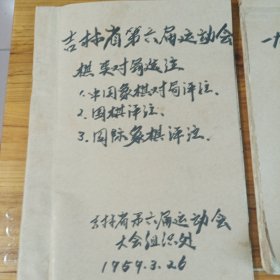 吉林省第六届运动会
棋类对局选注
1.中国象棋对局评注、
2.围棋评注、
3.国际象棋评注、
吉林省第六届运动会
大会组织处
1959.3.26